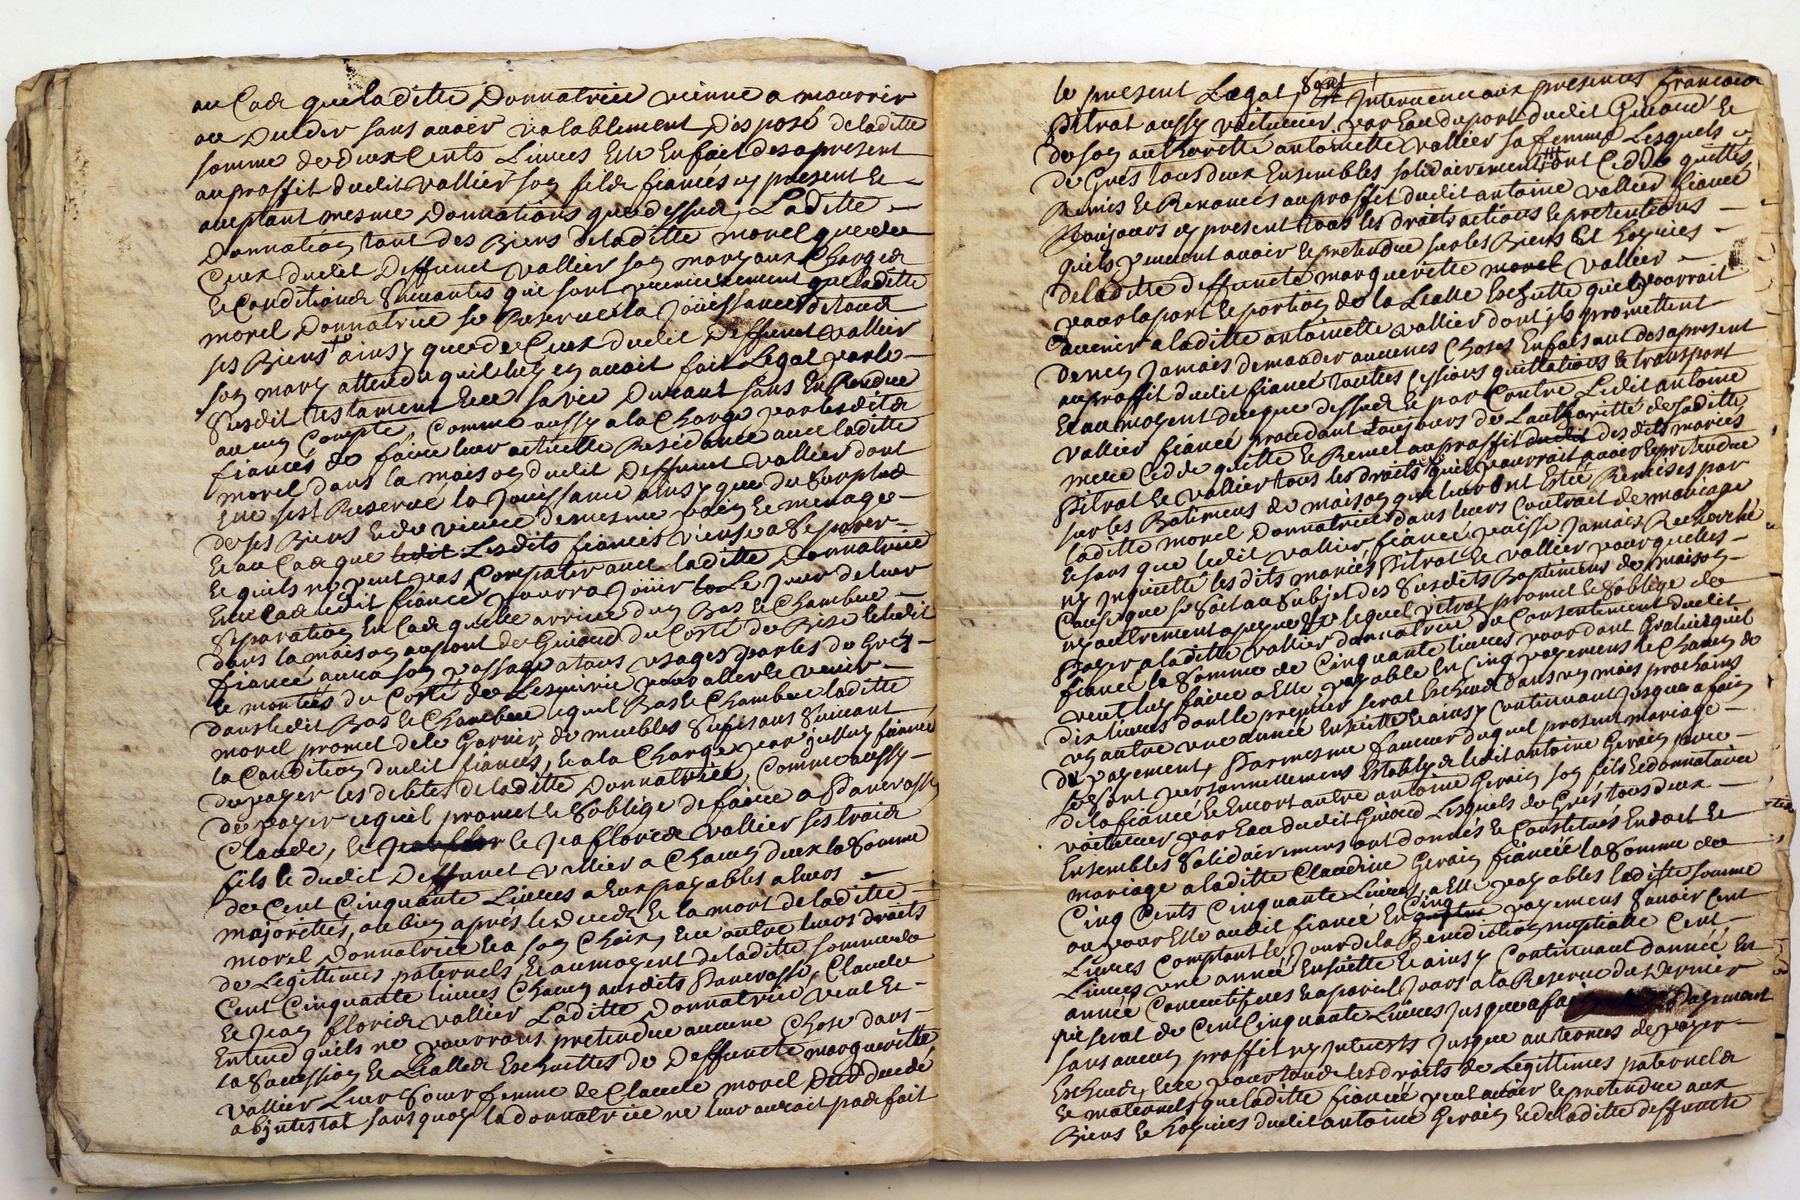 au Cas que laditte Donnatrice vienne a mourrir
ou Deceder sans avoir valablement Disposé de laditte
somme de deux Cents Livres Elle En fait des apresent
au proffit dudit vallier son fils fiances y present Et
aceptant mesme Donnations que dessus, Laditte
Donnation tant des Biens de laditte morel que de
Ceux dudit Deffunct vallier son mary aux Charges
Et Conditions Suivantes qui sont premierement que laditte
morel Donnatrice se Reserve la Joüissance de tous
ses Biens ainsy que de Ceux dudit Deffunct vallier
son mary attendu qu'il luy en avait fait Legat par le
Susdit testament Et ce sa vie Durant sans En Rendre
aucun Compte, Comme aussy a la Charge par lesdits
fiancés de faire leur actuelle Residance avec laditte
morel dans la maison dudit Deffunct vallier dont
Elle s'est Reservé la Jouissance ainsy que du Surplus
de ses Biens Et de vivre de mesme pain Et menage
Et au Cas que Lesdits fiancés vinse a Se parer
Et quils ne peut pas Compatir avec laditte Donnatrice
En ce Cas ledit fiancé pourra Joüir Le Jour de leur
Separation En Cas quelle arrive d'un Bas Et Chambre
dans la maison au pont de Givaud du Costé de Bise Et ledit
fiancé aura son passage a tous usages par les de Grez
Et montées du Costé de pour aller Et venir
dans ledit Bas Et Chambre lequel Bas Et Chambre laditte
morel promet de le Garnir de meubles Sufisans Suivant
la Condition dudit fiancés, Et a la Charge par Jcelluy fiancé
de payer les debtes de laditte Donnatrice, Comme aussy
de payer Ce qu'il promet Et Soblige de faire a Pancrasse
Claude, Et Et Jean florids vallier ses trois
fils Et dudit Deffunct vallier a Chacun deux la Somme
de Cent Cinquante Livres a Eux payables a leurs
majorittés, ou bien après le deceds Et la mort de laditte
morel Donnatrice Et a son Choix, Et ce outre leurs droits
de Legittimes paternels, Et au moyent de laditte somme de
Cent Cinquante livres Chacun ausdits Pancrasse, Claude
Et Jean florids vallier Laditte Donnatrice veut Et
Entend quils ne pourrons pretendre aucune Chose dans
la Succession Et Escheuttes de Deffuncte margueritte
vallier Leur Sœur femme de Claude morel Decedé
abjntestat sans quoy la donnatrice ne leur auroit pas fait
le present Legat, Sont Intervenu aux presentes francois
Pitrat aussy voiturier par Eau du port dudit Givaud Et
de son authoritté antoinette vallier sa femme Lesquels
de Gres tous deux Ensembles solidairement ont Cedde quitté
Remis Et Renoncés au proffit dudit antoine vallier fiancé
toujours y present tous les droits actions Et pretentions
quils peuvent avoir Et pretendre sur les Biens Et hoyries
de laditte deffuncte marguerite morel vallier
pour la part Et portion de la Escheutte qui pourrait
avenir a laditte antoinette vallier dont ils promettent
de n'en Jamais demander aucunes Choses En faisant des apresent
au proffit dudit fiancé toutes Cessions quittations Et transport
Et au moyent de ce que dessus Et par Contre Ledit antoine
vallier fiancé procedant toujours de Lauthoritté de laditte
mere Cedde quitte Et Remet au proffit des dits mariés
Pitrat Et vallier tous les droits quil pourrait avoir Et pretendre
sur les Batimens de maison qui leur ont Esté Remises par
laditte morel Donnatrice dans leurs Contrait de mariage
Et sans que ledit vallier fiancé puisse Jamais Recherché
ny Jnquietté les dits mariés Pitrat Et vallier pour quelles
Causes que se soit au Subjet des Susdits Batimens de maison
ny autrement lequel Pitrat promet Et Soblige de
Payer a laditte vallier donnatrice du Consentement dudit
fiancé la Somme de Cinquante livres pour dont Gratieu quil
veut luy faire a Elle payable En Cinq payemens Et Chacun de
dix livres dont le premier serat Escheus dans un mois prochains
un autre une année Ensuitte Et ainsy Continuant Jusque a fait
de payement, Par mesme faveur duquel present mariage
se sont personnellement Establys ledit antoine Gerain pere
de la fiancé Et Encort autre antoine Gerain son fils Et donnataire
voiturier par Eau dudit Givaud Lesquels de Gres tous deux
Ensembles Solidairement ont donnés Et Constitués En dot Et
mariage a laditte Claudine Gerain fiancée la Somme de
Cinq Cents Cinquante Livres, a Elle payables laditte somme
ou pour Elle audit fiancé En Cinq payemens Savoir Cent
Livres Comptant le Jour de la Benediction nuptialle Cent
Livres une année Ensuitte Et ainsy Continuant dannée En
année Consecutifves Et a pareil Jours a la Reserve du Dernier
qui serat de Cent Cinquante Livres Jusque a fait Payement
sans aucun proffit ny Jnterests Jusque au termes de payer
Escheus, Et ce pour tous les droits de Legittimes paternels
Et maternels que laditte fiancée peut avoir Et pretendre aux
Biens Et hoyries dudit antoine Gerain Et de laditte deffuncte